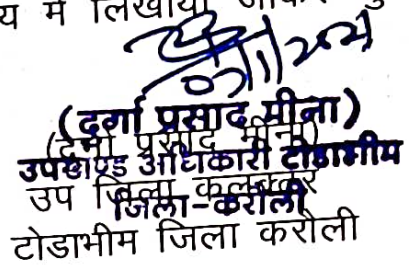 य में लिखाया जाकर
(दुर्गा प्रसाद मीना)
(दुर्गा प्रसाद मीना)
उपखण्ड अधिकारी टोडाभीम
उप जिला कलक्टर
जिला-करौली
टोडाभीम जिला करौली